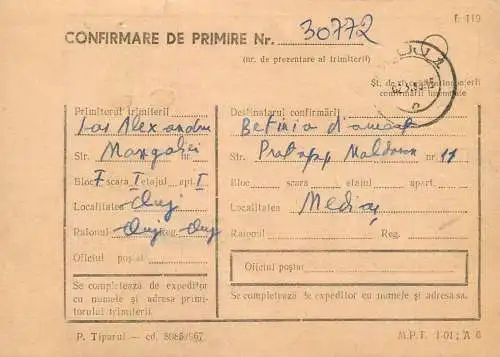 f. 119
CONFIRMARE DE PRIMIRE Nr. 30772
(nr. de prezentare al trimiterii)
Șt. de zi a
confirmării
Primitorul trimiterii
Alexandru
Str. Mangaliei nr.
Bloc F scara I etajul apt. I
Localitatea Cluj
Raionul Cluj Reg. Cluj
Oficiul poștal
Se completează de expeditor
cu numele și adresa primi-
torului trimiterii
Destinatarul confirmării
Str. Moldova nr. 11
Bloc scara etajul apart.
Localitatea Mediaș
Raionul Reg.
Oficiul poștal
Se completează de expeditor cu numele și adresa sa.
P. Tiparul — cd. 8088/967
M.P.T. 1-01; A 6